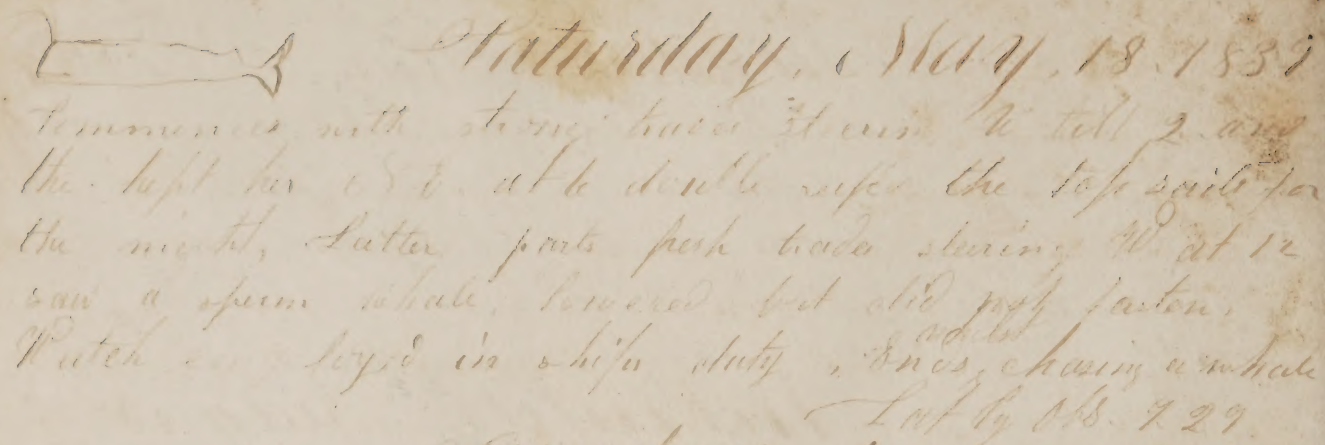 Saturday, May. 18. 1839
Commences with strong trades Steering W till 2 and
the kept her at 6 double reefed the top sails for
the night, Latter parts fresh trades steering W. at 12
saw a sperm whale, lowered but did not fasten.
Watch employed in ships duty, Ends, chasing a whale
Lat by Obs. 9.29